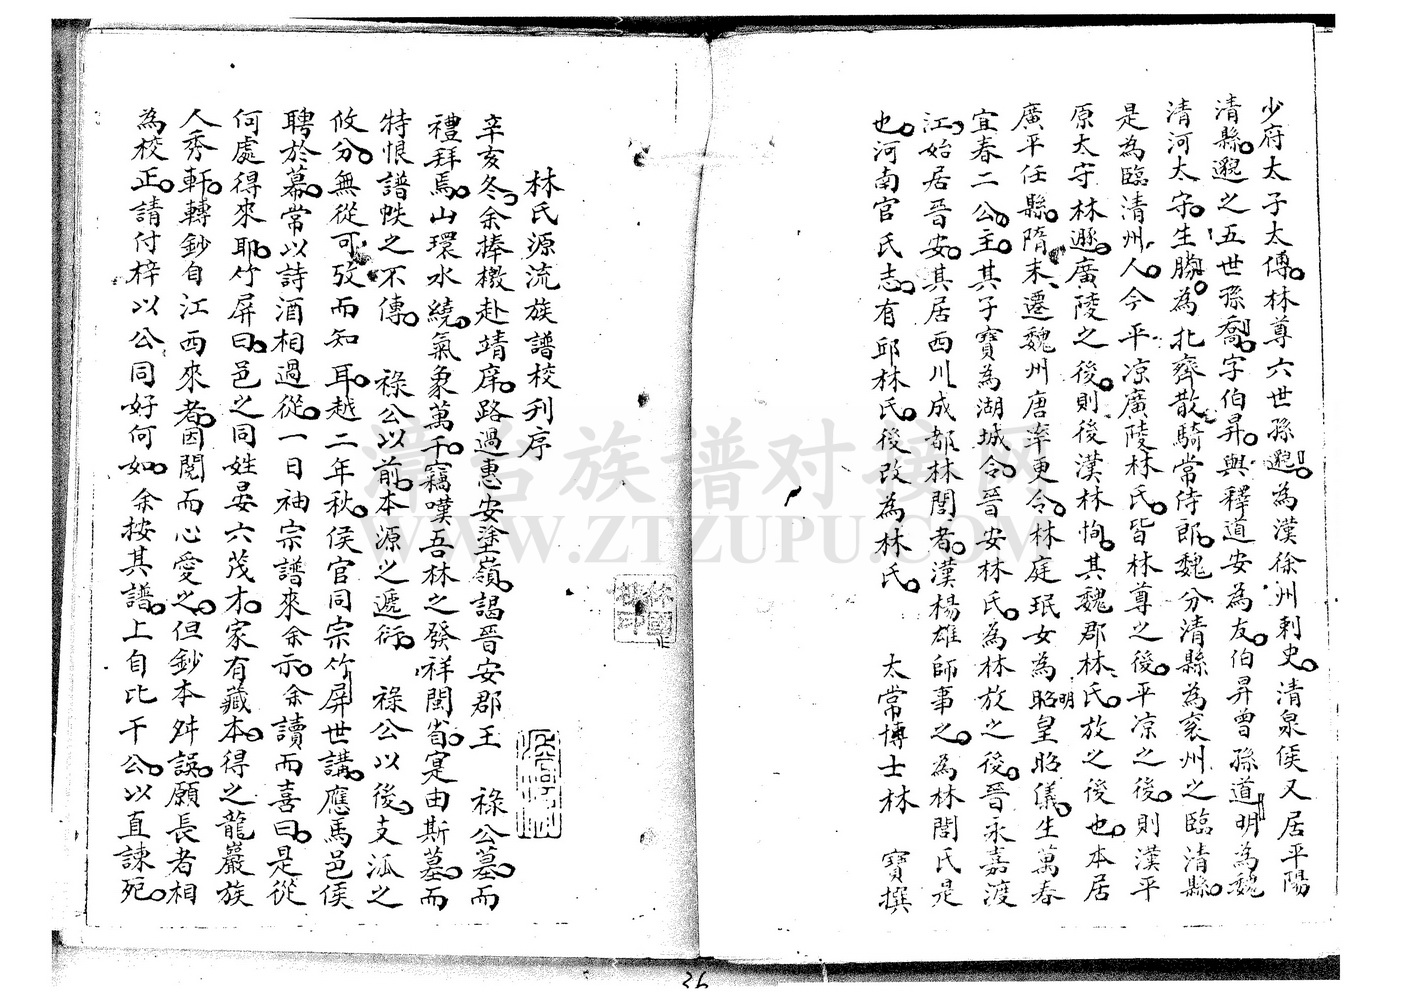 少府太子太傅林尊六世孫邈為漢徐州刺史清泉侯又居平陽
清縣邈之五世孫喬字伯昇與釋道安為友伯昇曾孫道明為魏
清河太守生勝為北齊散騎常侍郎魏分清縣為兗州之臨清縣
是為臨清州人今平凉廣陵林氏皆林尊之後平凉之後則漢平
原太守林遜廣陵之後則後漢林恂其魏郡林氏放之後也本居
廣平任縣隋末遷魏州唐率更令林庭珉女為明皇昭儀生萬春
宜春二公主其子寶為湖城令晉安林氏為林放之後晉永嘉渡
江始居晉安其居西川成都林閭者漢楊雄師事之為林閭氏是
也河南官氏志有邱林氏後改為林氏　太常博士林　寶撰
林氏源流族譜校刋序
辛亥冬余捧檄赴靖庠路過惠安塗嶺謁晉安郡王　祿公墓而
禮拜焉山環水繞氣象萬千竊嘆吾林之發祥閩省寔由斯墓而
特恨譜帙之不傳　祿公以前本源之遞衍　祿公以後支派之
攸分無從可攷而知耳越二年秋侯官同宗竹屏世講應馬邑侯
聘於幕常以詩酒相過從一日袖宗譜來余示余讀而喜曰是從
何處得來耶竹屏曰邑之同姓晏六茂才家有藏本得之龍巖族
人秀軒轉鈔自江西來者因閱而心愛之但鈔本舛誤願長者相
為校正請付梓以公同好何如余按其譜上自比干公以直諫死
漳台族谱对接网
WWW.ZTZUPU.COM
36